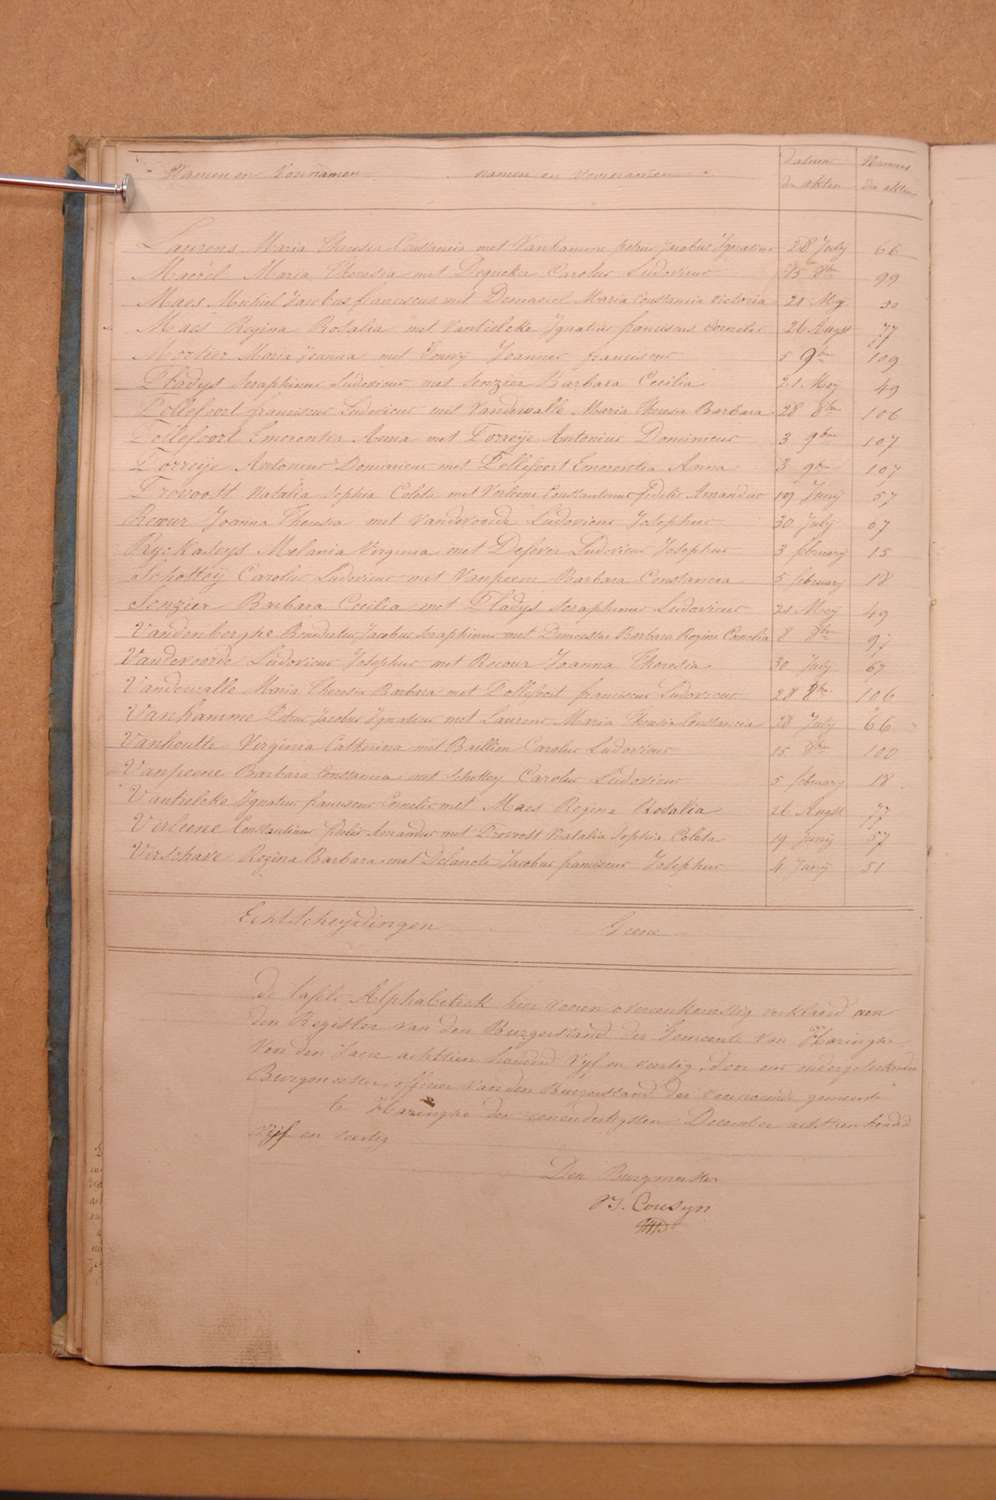 Namen en Voornamen namen en voornamen Datum der akten Nummer der akten
Laurens Maria Theresia Constancia met Vanhamme petrus jacobus Ignatius 28 July 66
Maria Theresia met Carolus Ludovicus 15 8bre 99
Maes Michiel Jacobus franciscus met Maria Constancia victoria 21 Mey 50
Maes Regina Rosalia met Vantielcke Ignatius franciscus Cornelis 26 August 77
Mortier Maria Joanna met Joannes franciscus 5 9bre 109
Pladys Seraphinus Ludovicus met Senzier Barbara Cecilia 21 Mey 49
Pollefoort franciscus Ludovicus met Vandewalle Maria Theresia Barbara 28 8bre 106
Pollefoort Emerentia Anna met Porreije Antonius Dominicus 3 9bre 107
Porreije Antonius Dominicus met Pollefoort Emerentia Anna 3 9bre 107
Provoost Natalia Sophia Coleta met Verleene Constantinus fidelis Amandus 19 Juny 57
Recour Joanna Theresia met Vandevoorde Ludovicus Josephus 30 July 67
Ryckaseys Melania Virginia met Defever Ludovicus Josephus 3 february 15
Schottey Carolus Ludovicus met Vanpeene Barbara Constancia 5 february 18
Senzier Barbara Cecilia met Pladys Seraphinus Ludovicus 21 Mey 49
Vandenberghe Jacobus Seraphinus met Barbara Regina 8 8bre 97
Vandevoorde Ludovicus Josephus met Recour Joanna Theresia 30 July 67
Vandewalle Maria Theresia Barbara met Pollefoort franciscus Ludovicus 28 8bre 106
Vanhamme Petrus Jacobus Ignatius met Laurens Maria Theresia Constancia 28 July 66
Vanhoutte Virginia Catherina met Baillien Carolus Ludovicus 15 8bre 100
Vanpeene Barbara Constancia met Schottey Carolus Ludovicus 5 february 18
Vantielcke Ignatius franciscus Cornelis met Maes Regina Rosalia 26 August 77
Verleene Constantinus fidelis Amandus met Provoost Natalia Sophia Coleta 19 Juny 57
Verschave Regina Barbara met Delanote Jacobus franciscus Josephus 4 Juny 51
Echtscheydingen Geene
De tafele Alphabetiek hier voren overeenkomstig verklaerd aen
den Register van den Burgerstand der Gemeente van Haringhe
Voor den Jaere achttien honderd Vyf en veertig, door ons ondergeteekende
Burgemeester, officier van den Burgerstand der voornoemde gemeente
te Haringhe den eenendertigsten December achttien honderd
Vyf en veertig
Den Burgmeester
P. J. Cousyn